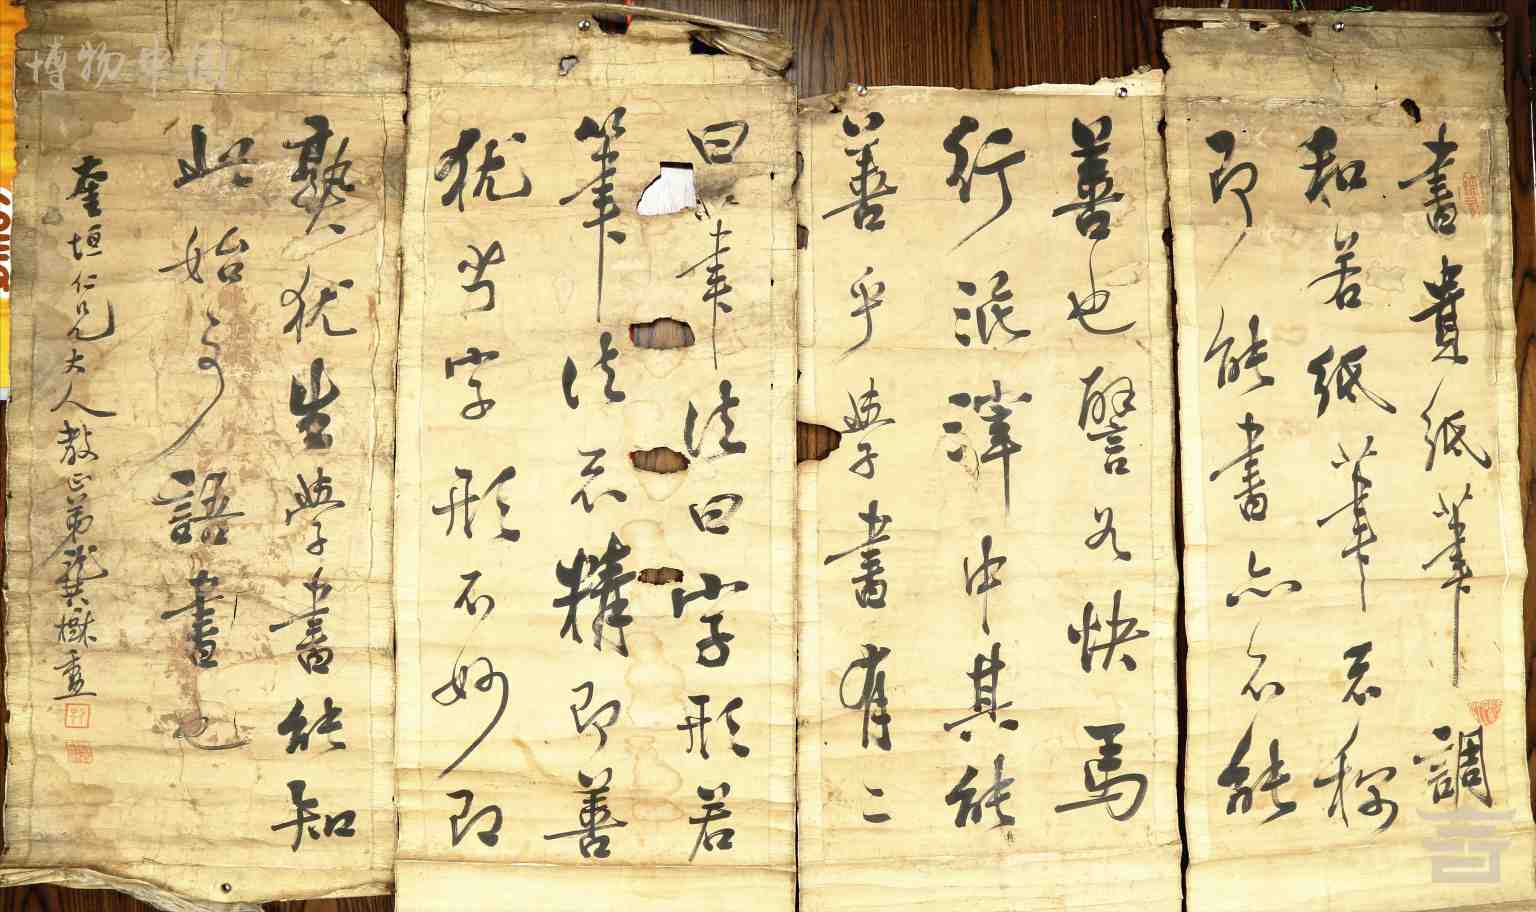 書貴紙筆調
和若紙筆不称
即能書亦不能
善也譬如快馬
行泥濘中其能
善乎學書有二
曰筆法曰字形若
筆法不精即善
猶若字形不妙即
熟猶生學書能知
此始可語書也
奎垣仁兄大人教正弟龔樾
博物中国